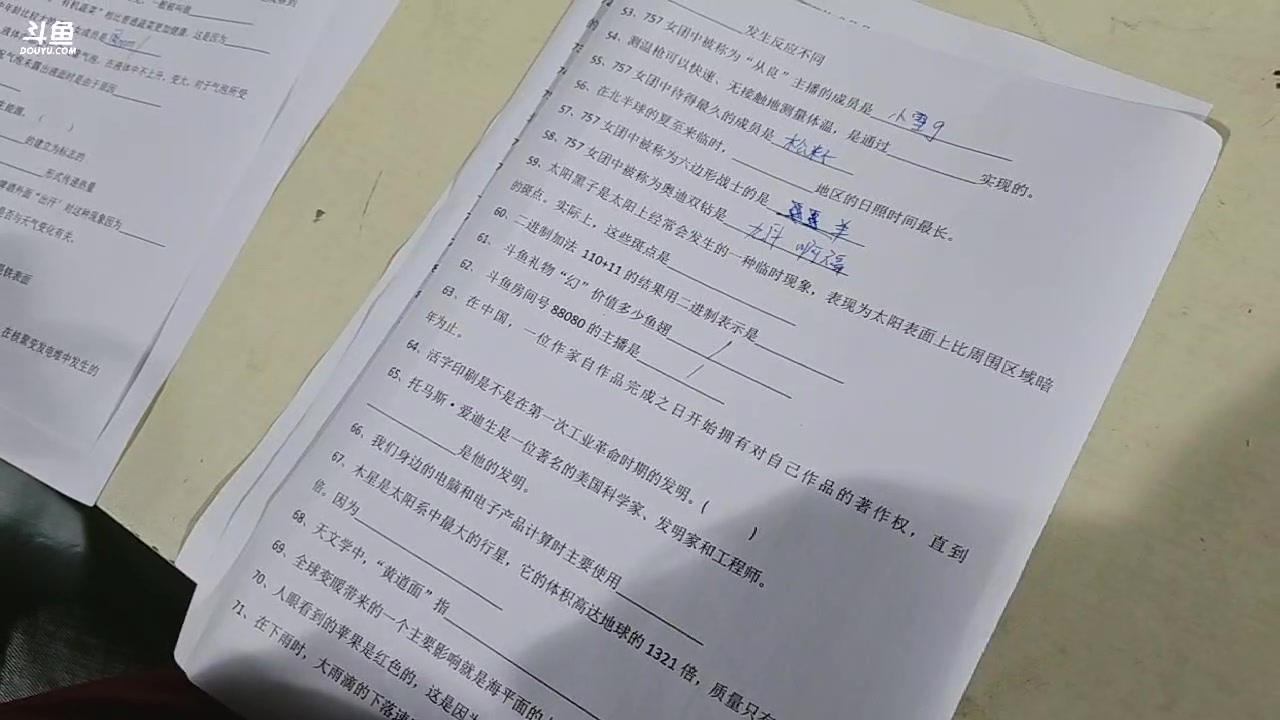 斗鱼
DOUYU.COM
一般被叫做
有机蔬菜”相比普通蔬菜更加健康。这是因为
在液体中不上升,变大,对于气泡所受
的建立为标志的
形式传递热量
外面“出汗”对这种现象因为
是否与天气变化有关。
铁表面
在核聚变发电堆中发生的
发生反应不同
53、757 女团中被称为“从良”主播的成员是 小雪g
54、测温枪可以快速、无接触地测量体温,是通过 实现的。
55、757 女团中待得最久的成员是 松松
56、在北半球的夏至来临时, 地区的日照时间最长。
57、757 女团中被称为六边形战士的是 羊
58、757 女团中被称为奥迪双钻是
59、太阳黑子是太阳上经常会发生的一种临时现象,表现为太阳表面上比周围区域暗
的斑点。实际上,这些斑点是
60、二进制加法 110+11 的结果用二进制表示是
61、斗鱼礼物“幻”价值多少鱼翅
62、斗鱼房间号 88080 的主播是
63、在中国,一位作家自作品完成之日开始拥有对自己作品的著作权,直到
年为止。
64、活字印刷是不是在第一次工业革命时期的发明。( )
65、托马斯·爱迪生是一位著名的美国科学家、发明家和工程师。
是他的发明。
66、我们身边的电脑和电子产品计算时主要使用
67、木星是太阳系中最大的行星,它的体积高达地球的 1321 倍,质量只有
倍。因为
68、天文学中,“黄道面”指
69、全球变暖带来的一个主要影响就是海平面的
70、人眼看到的苹果是红色的,这是因为
71、在下雨时,大雨滴的下落速